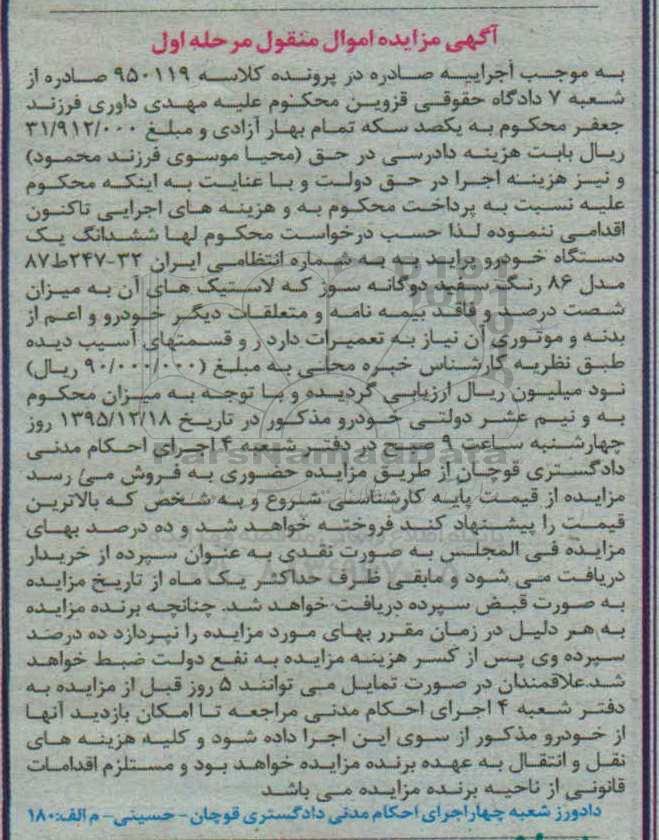 آگهی مزایده اموال منقول مرحله اول
به موجب اجراییه صادره در پرونده کلاسه ۹۵۰۱۱۹ صادره از
شعبه ۷ دادگاه حقوقی قزوین محکوم علیه مهدی داوری فرزند
جعفر محکوم به یکصد سکه تمام بهار آزادی و مبلغ ۳۱/۹۱۲/۰۰۰
ریال بابت هزینه دادرسی در حق (محیا موسوی فرزند محمود)
و نیز هزینه اجرا در حق دولت و با عنایت به اینکه محکوم
علیه نسبت به پرداخت محکوم به و هزینه های اجرایی تاکنون
اقدامی ننموده لذا حسب درخواست محکوم لها ششدانگ یک
دستگاه خودرو پراید به به شماره انتظامی ایران ۳۲-۲۴۷ط۸۷
مدل ۸۶ رنگ سفید دوگانه سوز که لاستیک های آن به میزان
شصت درصد و فاقد بیمه نامه و متعلقات دیگر خودرو و اعم از
بدنه و موتوری آن نیاز به تعمیرات دارد ر و قسمتهای آسیب دیده
طبق نظریه کارشناس خبره محلی به مبلغ (۹۰/۰۰۰/۰۰۰ ریال)
نود میلیون ریال ارزیابی گردیده و با توجه به میزان محکوم
به و نیم عشر دولتی خودرو مذکور در تاریخ ۱۳۹۵/۱۲/۱۸ روز
چهارشنبه ساعت ۹ صبح در دفتر شعبه ۴ اجرای احکام مدنی
دادگستری قوچان از طریق مزایده حضوری به فروش می رسد
مزایده از قیمت پایه کارشناسی شروع و به شخص که بالاترین
قیمت را پیشنهاد کند فروخته خواهد شد و ده درصد بهای
مزایده فی المجلس به صورت نقدی به عنوان سپرده از خریدار
دریافت می شود و مابقی ظرف حداکثر یک ماه از تاریخ مزایده
به صورت قبض سپرده دریافت خواهد شد. چنانچه برنده مزایده
به هر دلیل در زمان مقرر بهای مورد مزایده را نپردازد ده درصد
سپرده وی پس از کسر هزینه مزایده به نفع دولت ضبط خواهد
شد.علاقمندان در صورت تمایل می توانند ۵ روز قبل از مزایده به
دفتر شعبه ۴ اجرای احکام مدنی مراجعه تا امکان بازدید آنها
از خودرو مذکور از سوی این اجرا داده شود و کلیه هزینه های
نقل و انتقال به عهده برنده مزایده خواهد بود و مستلزم اقدامات
قانونی از ناحیه برنده مزایده می باشد
دادورز شعبه چهاراجرای احکام مدنی دادگستری قوچان- حسینی- م الف:۱۸۰
ParsNamadData